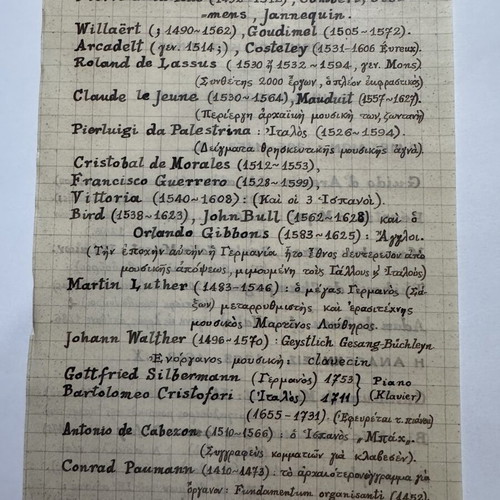 mens, Jannequin.
Willaërt (; 1490~1562), Goudimel (1505~1572).
Arcadelt (γεν. 1514;), Costeley (1531-1606 Evreux).
Roland de Lassus (1530 ἤ 1532~1594, γεν. Mons)
(Συνθέτης 2000 ἔργων, ὁ πλέον ἐκφραστικός)
Claude le Jeune (1530~1564), Mauduit (1557~1627).
(Περίεργη ἀρχαϊκή μουσική των, ζωντανή)
Pierluigi da Palestrina : Ἰταλὸς (1526~1594).
(Δείγματα θρησκευτικῆς μουσικῆς ἁγνά).
Cristobal de Morales (1512~1553),
Francisco Guerrero (1528~1599),
Vittoria (1540~1608) : (Καὶ οἱ 3 Ἱσπανοί).
Bird (1538~1623), John Bull (1562~1628) καὶ ὁ
Orlando Gibbons (1583~1625) : Ἄγγλοι.
(Τὴν ἐποχὴν αὐτὴν ἡ Γερμανία ἦτο ἔθνος δευτερεῦον ἀπὸ
μουσικῆς ἀπόψεως, μιμουμένη τοὺς Γάλλους κ' Ἰταλοὺς)
Martin Luther (1483-1546) : ὁ μέγας Γερμανὸς (Σά-
ξων) μεταρρυθμιστὴς καὶ ἐρασιτέχνης
μουσικὸς Μαρτῖνος Λούθηρος.
Johann Walther (1496~1570) : Geystlich Gesang-Büchleyn
Ἐνόργανος μουσική: clavecin
Gottfried Silbermann (Γερμανὸς) 1753 } Piano
Bartolomeo Cristofori (Ἰταλὸς) 1711 } (Klavier)
(1655-1731) (Ἐφευρέται τ. πιάνου)
Antonio de Cabezon (1510~1566) : ὁ Ἱσπανὸς „Μπάχ„.
(Συγγραφεὺς κομματιῶν γιὰ κλαβεσέν).
Conrad Paumann (1410-1473) : τὸ ἀρχαιότερον γράμμα γιὰ
ὄργανον: Fundamentum organisanti (1452)